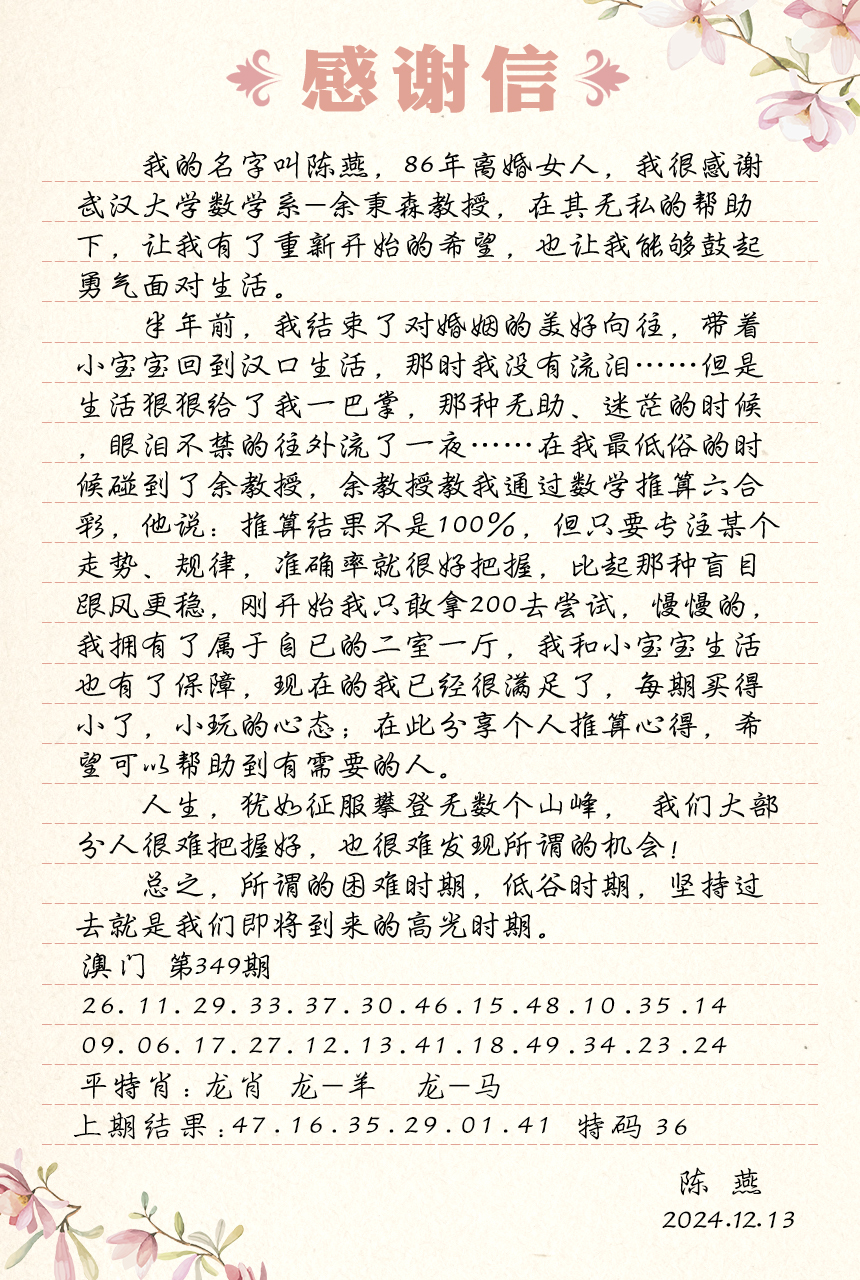 感谢信
我的名字叫陈燕，86年离婚女人，我很感谢
武汉大学数学系—余秉森教授，在其无私的帮助
下，让我有了重新开始的希望，也让我能够鼓起
勇气面对生活。
半年前，我结束了对婚姻的美好向往，带着
小宝宝回到汉口生活，那时我没有流泪……但是
生活狠狠给了我一巴掌，那种无助、迷茫的时候
，眼泪不禁的往外流了一夜……在我最低俗的时
候碰到了余教授，余教授教我通过数学推算六合
彩，他说：推算结果不是100%，但只要专注某个
走势、规律，准确率就很好把握，比起那种盲目
跟风更稳，刚开始我只敢拿200去尝试，慢慢的，
我拥有了属于自已的二室一厅，我和小宝宝生活
也有了保障，现在的我已经很满足了，每期买得
小了，小玩的心态；在此分享个人推算心得，希
望可以帮助到有需要的人。
人生，犹如征服攀登无数个山峰， 我们大部
分人很难把握好，也很难发现所谓的机会！
总之，所谓的困难时期，低谷时期，坚持过
去就是我们即将到来的高光时期。
澳门 第349期
26.11.29.33.37.30.46.15.48.10.35.14
09.06.17.27.12.13.41.18.49.34.23.24
平特肖：龙肖 龙—羊 龙—马
上期结果：47.16.35.29.01.41 特码 36
陈 燕
2024.12.13